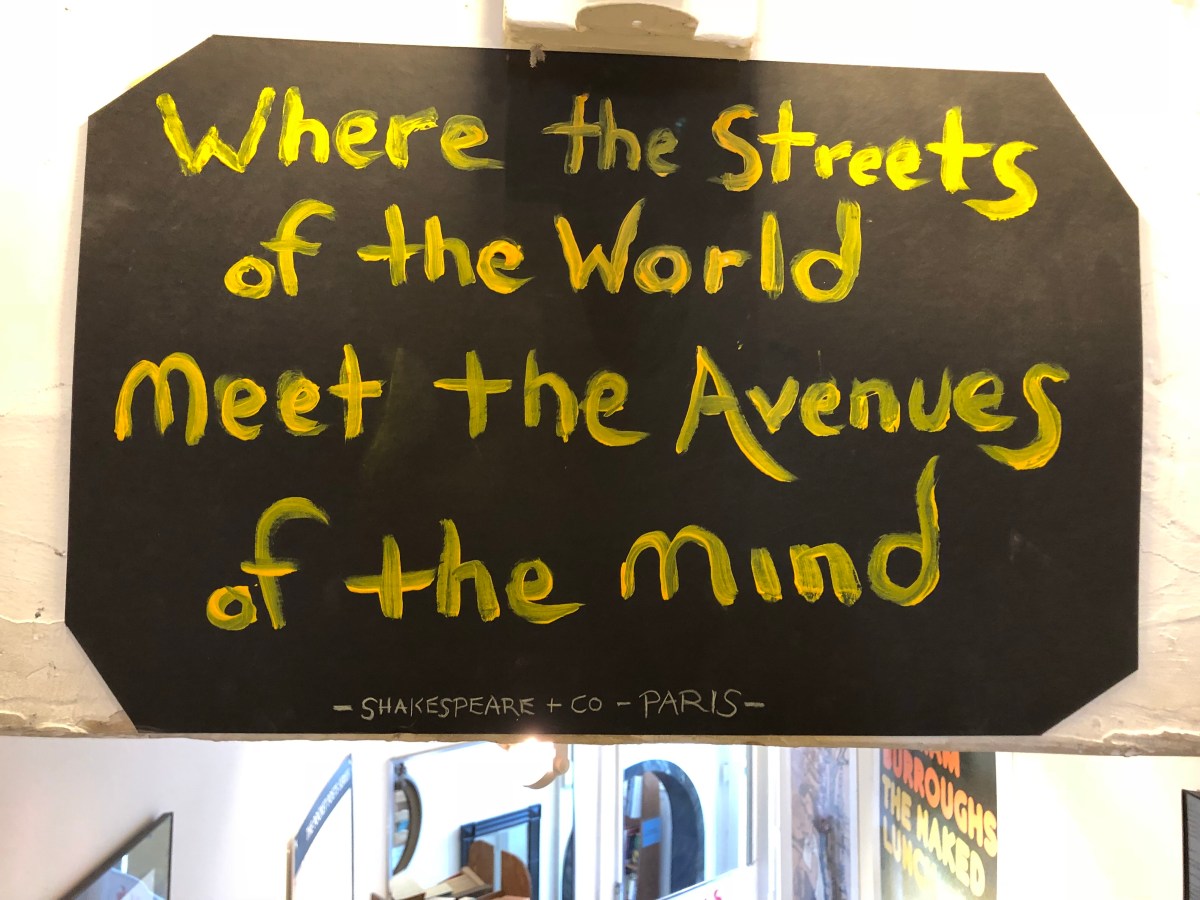 Where the Streets
of the World
Meet the Avenues
of the Mind
- SHAKESPEARE + CO - PARIS -
BURROUGHS
THE NAKED